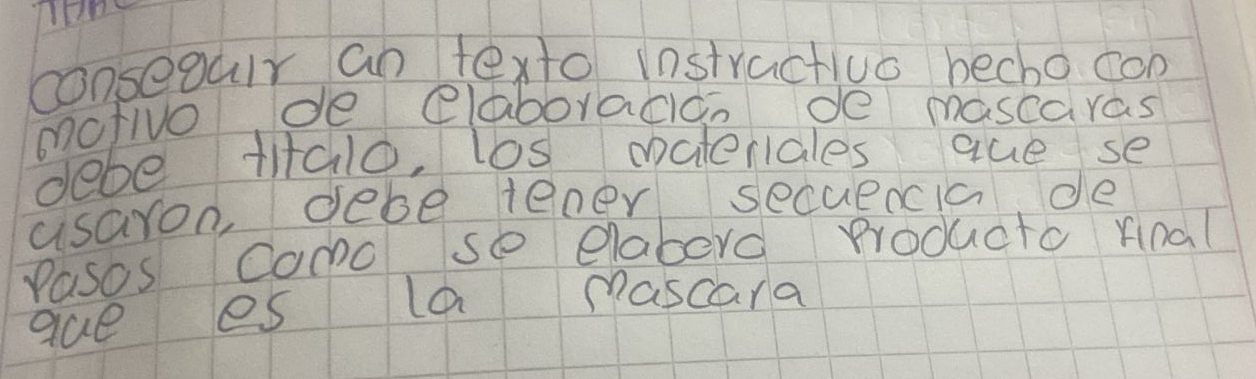 conseguir un texto instructivo hecho con
motivo de elaboración de mascaras
debe titulo, los materiales que se
usaron, debe tener secuencia de
pasos como se elaboro producto final
que es la mascara